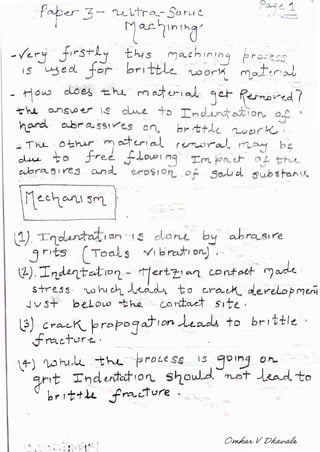 Page 1
Paper 3 - Ultra-Sonic
Machining
- Very firstly this machining process
is used for brittle work material
- How does the material get Removed?
the answer is due to Indentation of
hard abrassives on brittle work.
- The other material removal may be
due to free flowing Impact of the
abrasives and erosion of solid substance
Mechanism
(1). Indentation is done by abrasive
grits (Tools vibration).
(2). Indentation - Hertzian contact made
stress which leads to crack development
just below the contact site.
(3) crack propogation leads to brittle
fracture.
(4) while the process is going on
grit Indentation should not lead to
brittle fracture.
Omkar V Dhavale